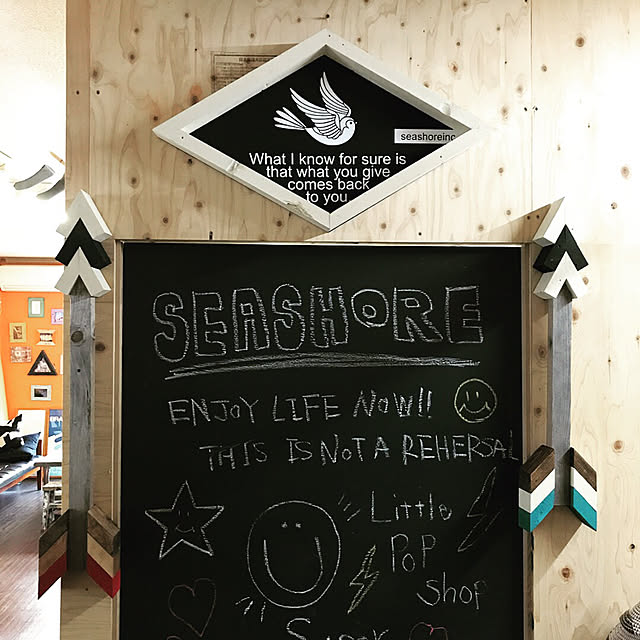 seashoreinc
What I know for sure is
that what you give
comes back
to you
SEASHORE
ENJOY LIFE NOW!!
THIS IS NOT A REHERSAL
Little
POP
Shop